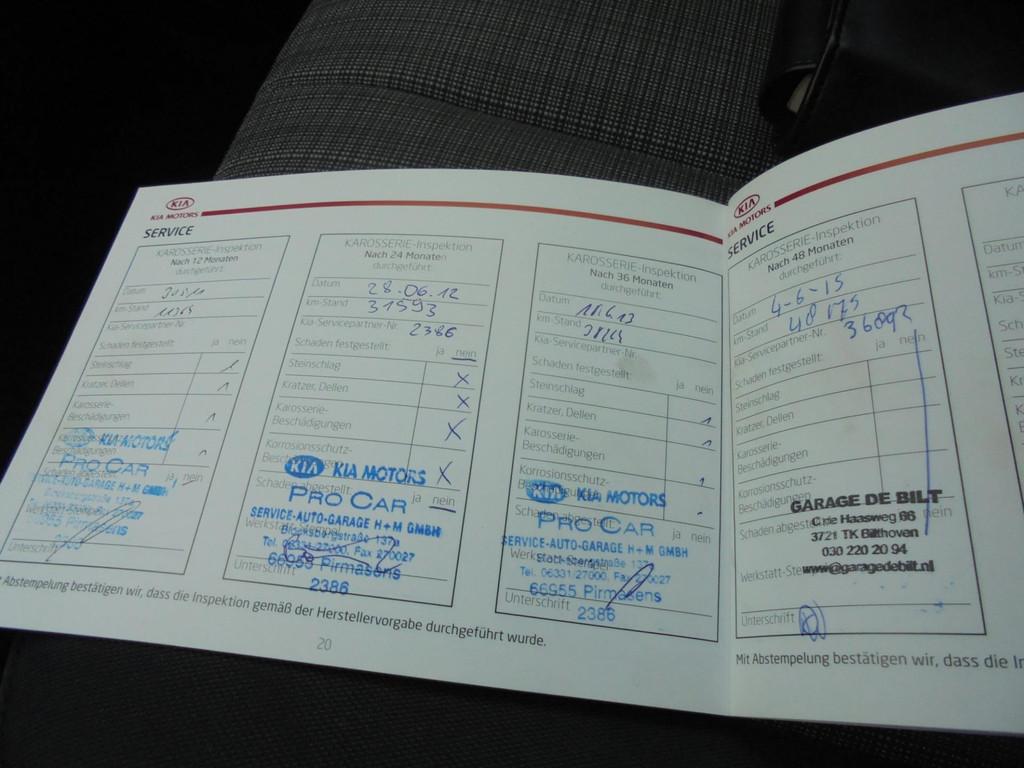 KIA
KIA MOTORS
SERVICE
KAROSSERIE-Inspektion
Nach 12 Monaten
durchgeführt:
Datum
km-Stand
Kia-Servicepartner-Nr.
Schaden festgestellt: ja nein
Steinschlag
Kratzer, Dellen
Karosserie-
Beschädigungen
KIA MOTORS
PRO CAR
SERVICE-AUTO-GARAGE H+M GMBH
66955 Pirmasens
Unterschrift
KAROSSERIE-Inspektion
Nach 24 Monaten
durchgeführt:
Datum 28.06.12
km-Stand 31593
Kia-Servicepartner-Nr. 2386
Schaden festgestellt: ja nein
Steinschlag X
Kratzer, Dellen X
Karosserie-
Beschädigungen X
Korrosionsschutz-
X
KIA KIA MOTORS
Schaden abgestellt: ja nein
PRO CAR
SERVICE-AUTO-GARAGE H+M GMBH
Tel. 06331-27000, Fax 270027
66955 Pirmasens
Unterschrift
2386
KAROSSERIE-Inspektion
Nach 36 Monaten
durchgeführt:
Datum
km-Stand
Kia-Servicepartner-Nr.
Schaden festgestellt: ja nein
Steinschlag
Kratzer, Dellen
Karosserie-
Beschädigungen
Korrosionsschutz-
KIA KIA MOTORS
Schaden abgestellt: ja nein
PRO CAR
SERVICE-AUTO-GARAGE H+M GMBH
Tel. 06331/27000, Fax 270027
66955 Pirmasens
Unterschrift
2386
Abstempelung bestätigen wir, dass die Inspektion gemäß der Herstellervorgabe durchgeführt wurde.
20
KIA
KIA MOTORS
SERVICE
KAROSSERIE-Inspektion
Nach 48 Monaten
durchgeführt:
Datum 4-6-15
km-Stand 48175
Kia-Servicepartner-Nr.
Schaden festgestellt: ja nein
Steinschlag
Kratzer, Dellen
Karosserie-
Beschädigungen
Korrosionsschutz-
Beschädigungen
GARAGE DE BILT
Schaden abgestellt: nein
C. de Haasweg 66
3721 TK Bilthoven
030 220 20 94
www@garagedebilt.nl
Unterschrift
Mit Abstempelung bestätigen wir, dass die
Datum
km-Stand